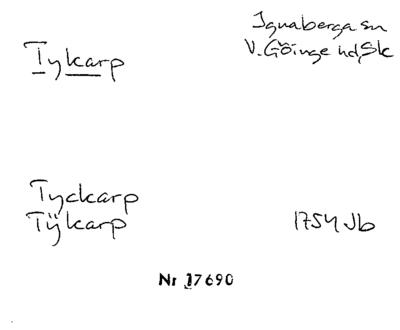 Tykarp
Ignaberga sn
V. Göinge hd, Sk
Tyckarp
Tÿkarp
1754 Jb
Nr 17690